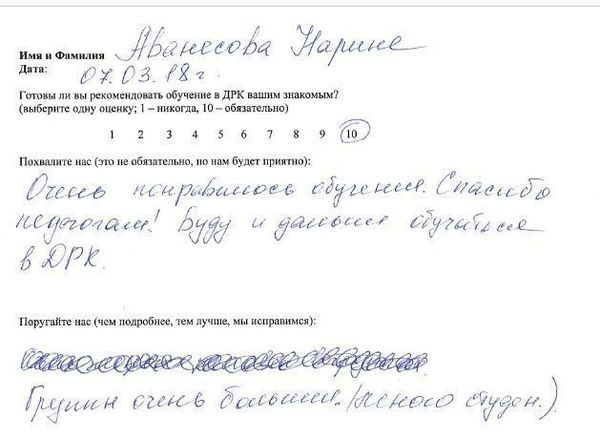 Имя и Фамилия Аванесова Нарине
Дата: 07.03.18 г.
Готовы ли вы рекомендовать обучение в ДРК вашим знакомым?
(выберите одну оценку; 1 – никогда, 10 – обязательно)
1 2 3 4 5 6 7 8 9 10
Похвалите нас (это не обязательно, но нам будет приятно):
Очень понравилось обучение. Спасибо
педагогам! Буду и дальше обучаться
в ДРК.
Поругайте нас (чем подробнее, тем лучше, мы исправимся):
Группы очень большие. (много студен.)